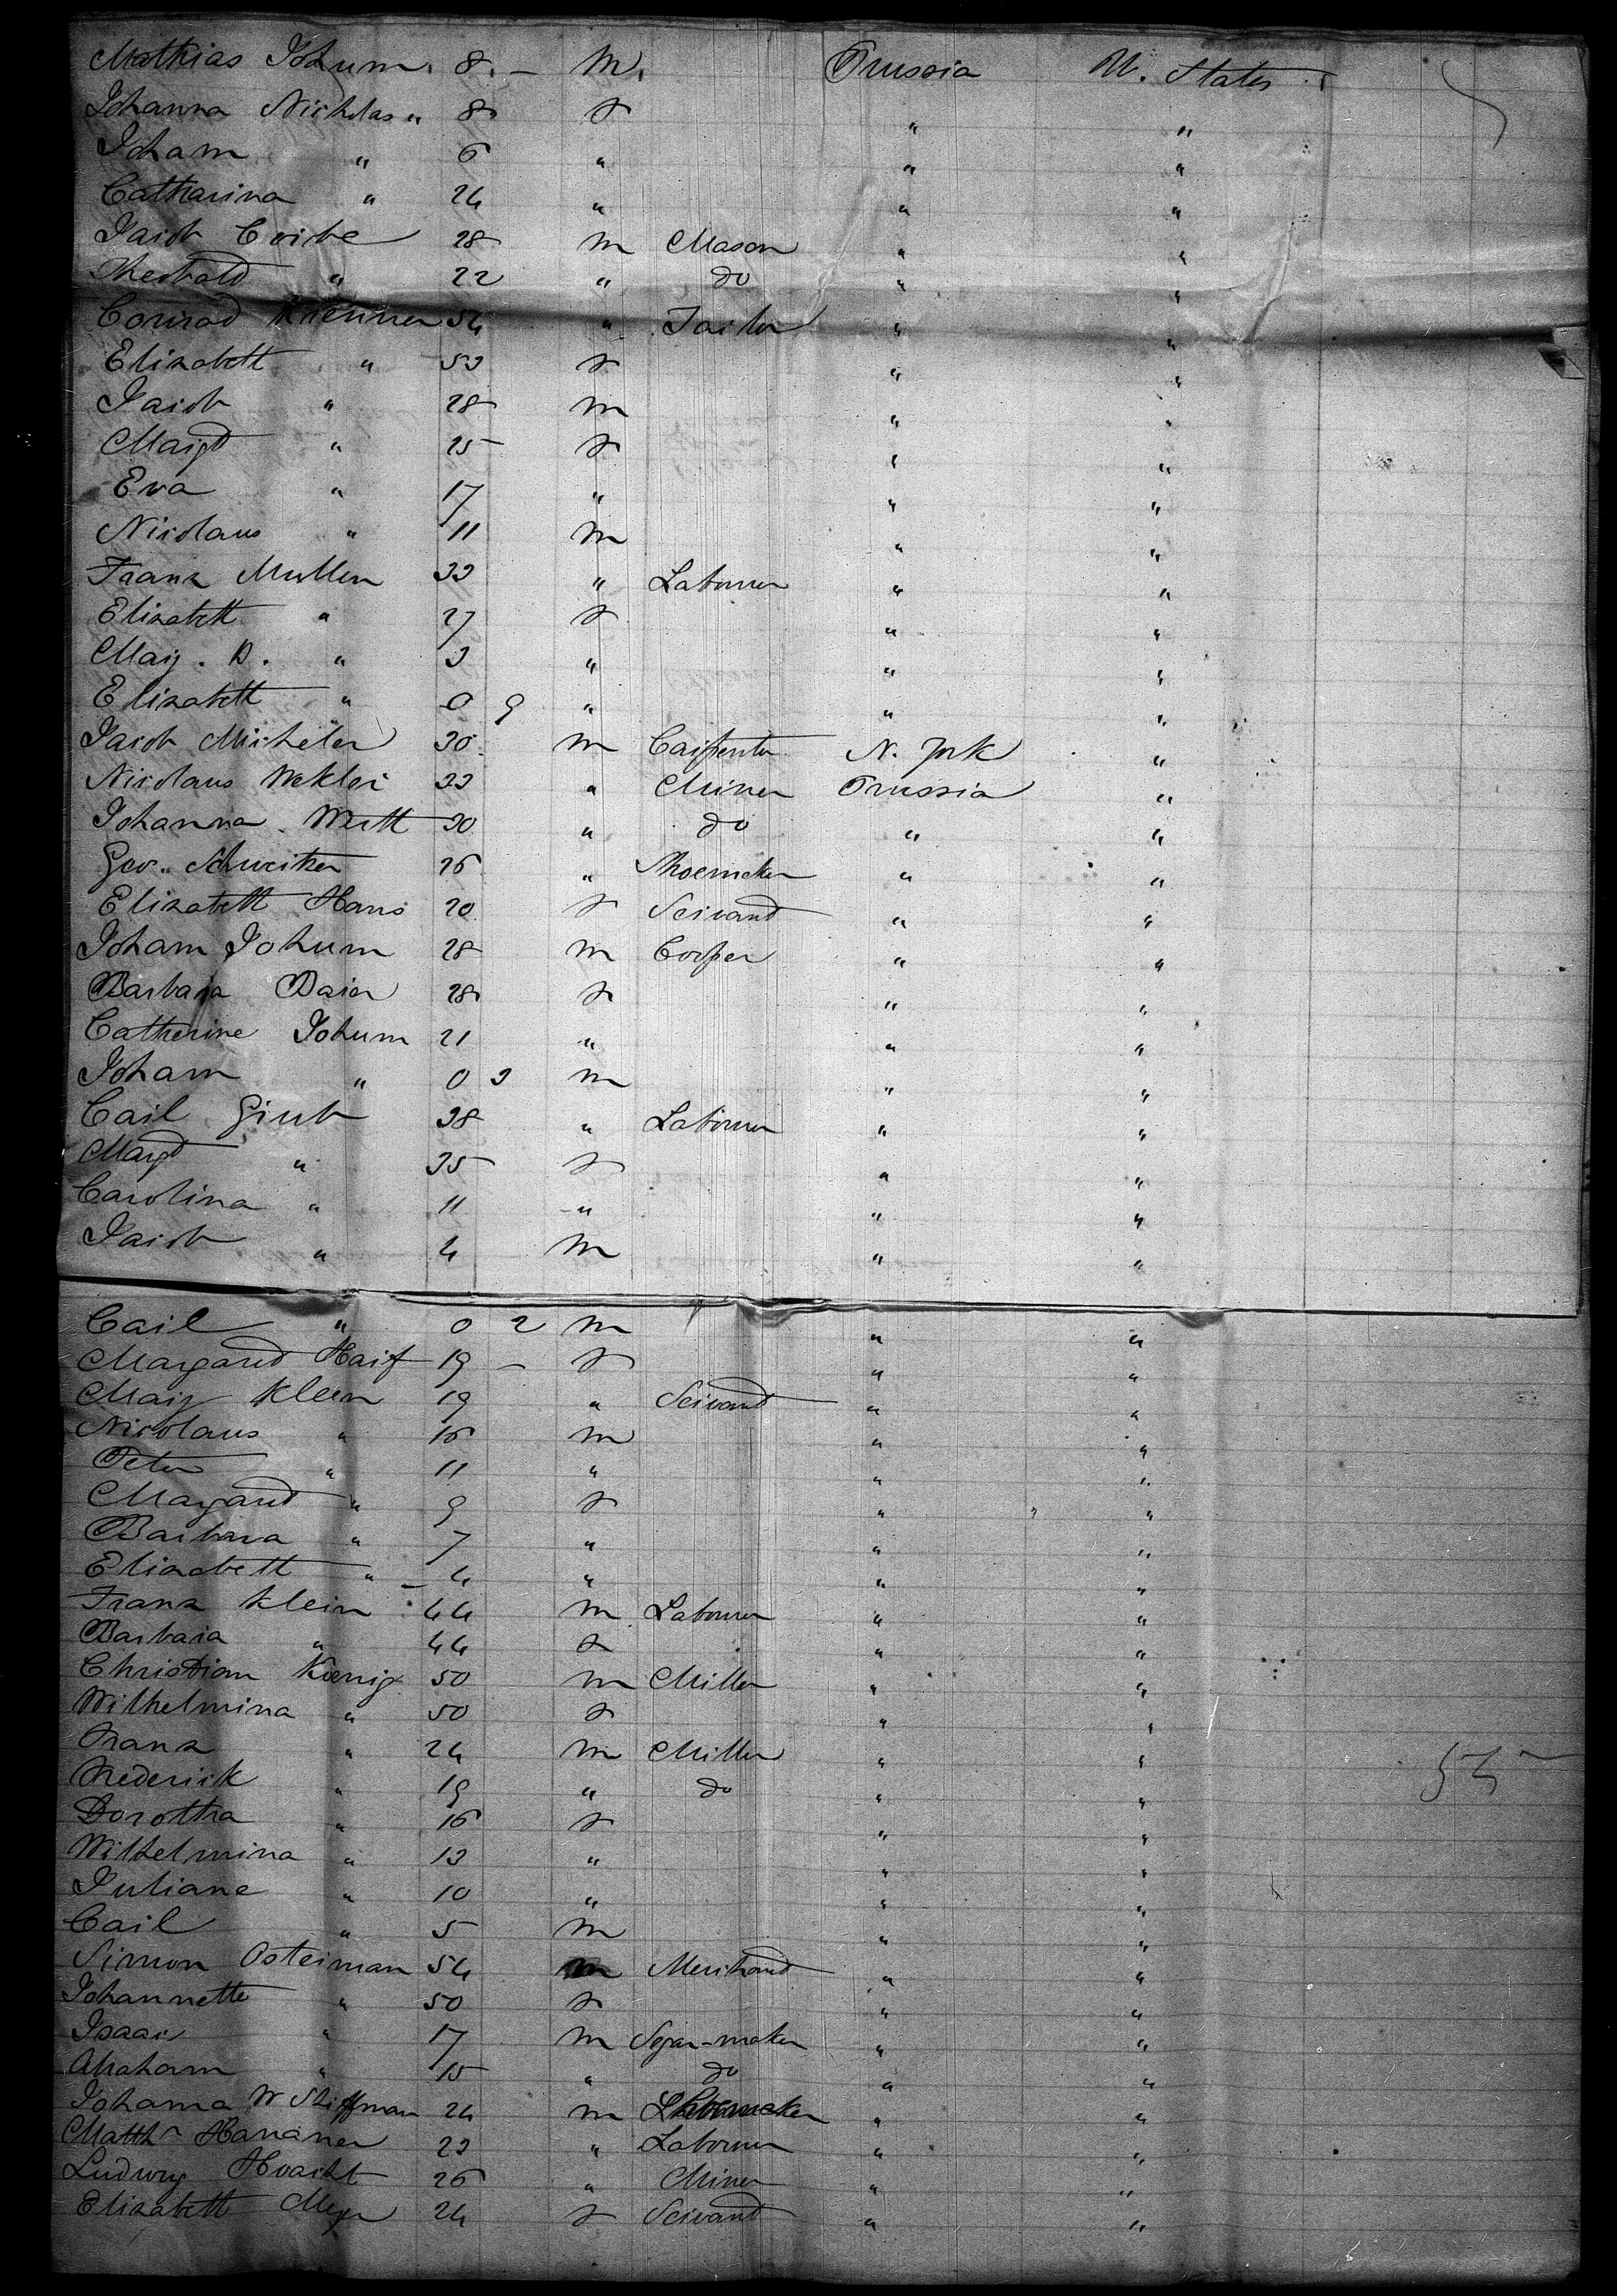 Mathias Johum. 8. – M. Prussia U. States
Johanna Nicholas " 8 f " "
Joham " 6 " " "
Catharina " 24 " " "
Jacob Coibe 28 m Mason " "
Theobald " 22 " do " "
Conrad 54 " Tailor " "
Elizabett " 53 f " "
Jacob " 28 m " "
Margt " 25 f " "
Eva " 17 " " "
Nicolaus " 11 m " "
Franz Muller 33 " Labourer " "
Elizabett " 27 f " "
Marg. B. " 3 " " "
Elizabett " 0 9 " " "
Jacob Micheler 30 m Carpenter N. York "
Nicolaus Wekler 33 " Miner Prussia "
Johanna Wertt 30 " do " "
Geo. Schweitzer 26 " Shoemaker " "
Elizabett Hans 20 f Servand " "
Joham Johum 28 m Cooper " "
Barbara Baier 28 f " "
Catherine Johum 21 " " "
Joham " 0 3 m " "
Carl Grub 38 " Labourer " "
Margd " 35 f " "
Carolina " 11 " " "
Jacob " 4 m " "
Carl " 0 2 m " "
Margared Harf 19 – f " "
Marg Kleen 19 " Servand " "
Nicolaus " 16 m " "
Peter " 11 " " "
Margared " 9 f " "
Barbara " 7 " " "
Elizabett " 4 " " "
Franz Klein 44 m Labourer " "
Barbara " 44 f " "
Christian Koenig 50 m Miller " "
Wilhelmina " 50 f " "
Franz " 24 m Miller " "
Frederick " 19 " do " "
Dorothea " 16 f " "
Wilhelmina " 13 " " "
Juliane " 10 " " "
Carl " 5 m " "
Simon Osterman 54 m Merchand " "
Johannette " 50 f " "
Isaac " 17 m Segar-maker " "
Abraham " 15 " do " "
Johanna W Stiffman 24 m " "
Matth Hananer 23 " Labourer " "
Ludwig Hoacht 26 " Miner " "
Elizabett Meyer 24 f Servand " "